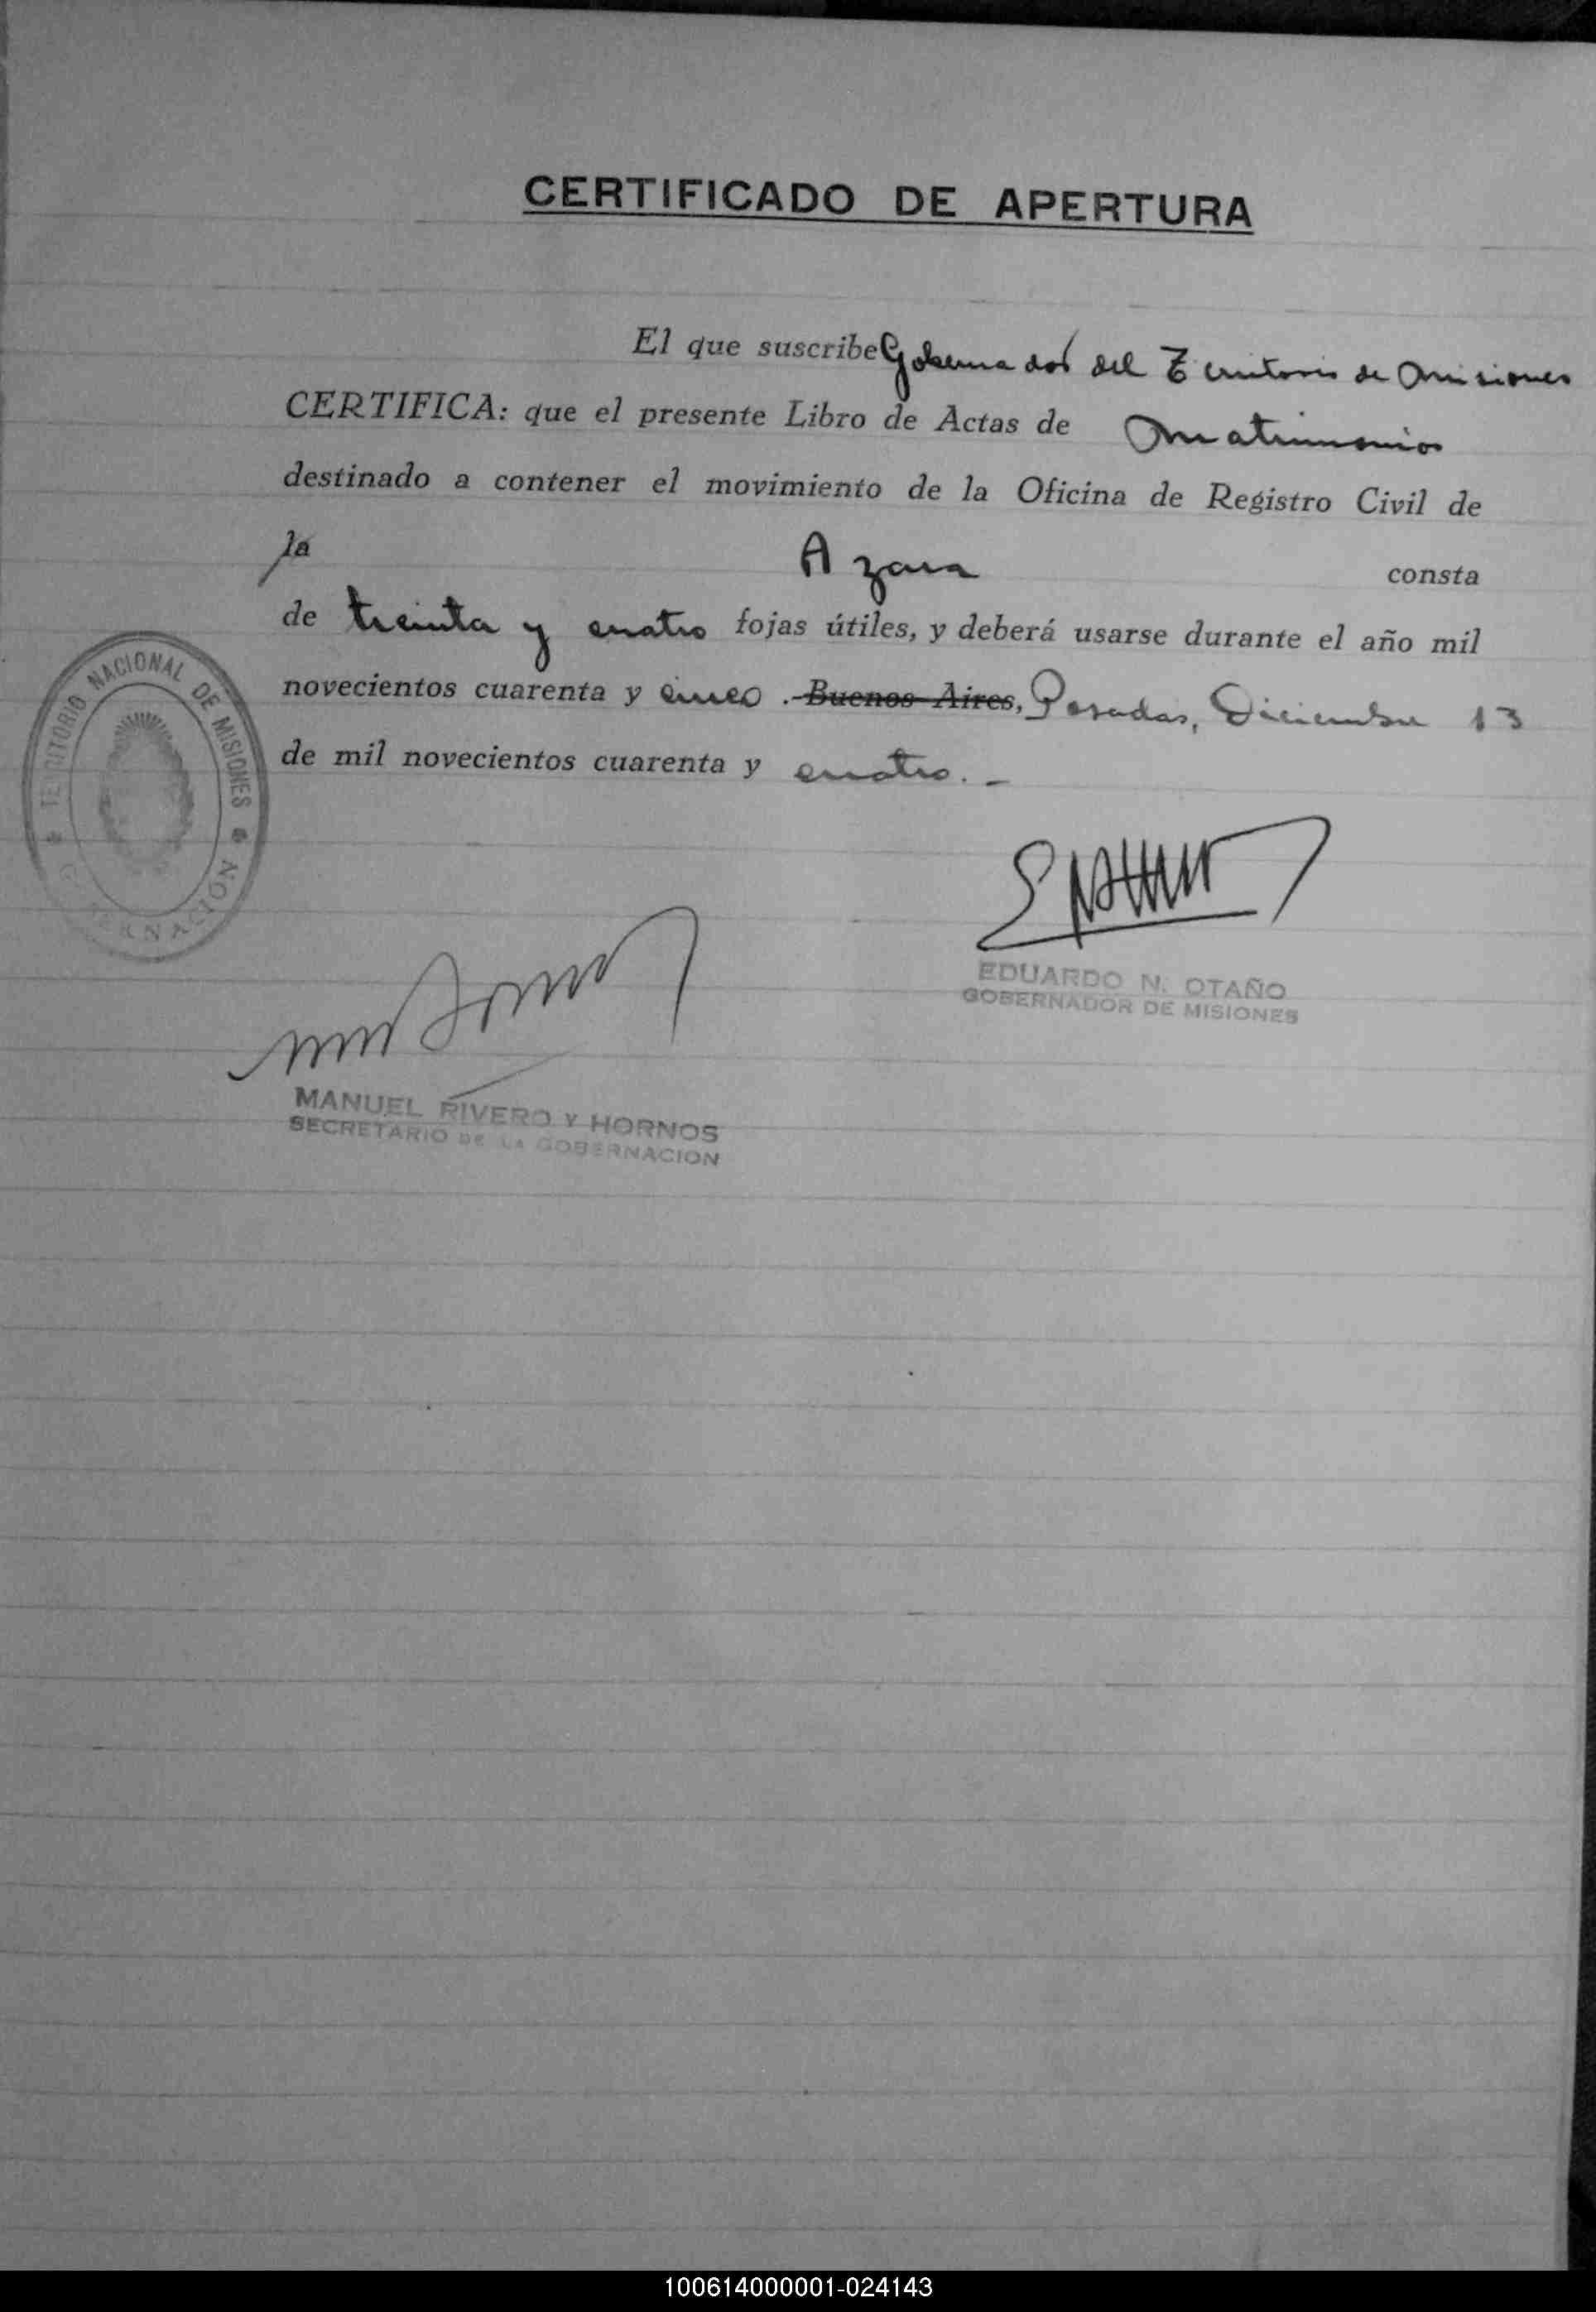 CERTIFICADO DE APERTURA
El que suscribe Gobernador del Territorio de Misiones
CERTIFICA: que el presente Libro de Actas de Matrimonios
destinado a contener el movimiento de la Oficina de Registro Civil de
la Azara consta
de treinta y cuatro fojas útiles, y deberá usarse durante el año mil
novecientos cuarenta y cinco . Buenos Aires, Posadas, Diciembre 13
de mil novecientos cuarenta y cuatro. -
TERRITORIO NACIONAL DE MISIONES
GOBERNACION
EDUARDO N. OTAÑO
GOBERNADOR DE MISIONES
MANUEL RIVERO Y HORNOS
SECRETARIO DE LA GOBERNACION
100614000001-024143